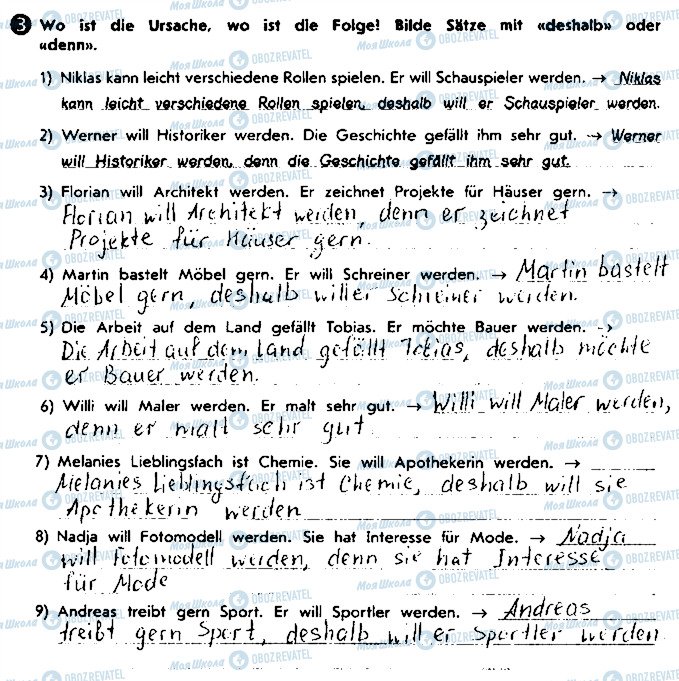 3 Wo ist die Ursache, wo ist die Folge! Bilde Sätze mit «deshalb» oder
«denn».
1) Niklas kann leicht verschiedene Rollen spielen. Er will Schauspieler werden. → Niklas
kann leicht verschiedene Rollen spielen, deshalb will er Schauspieler werden.
2) Werner will Historiker werden. Die Geschichte gefällt ihm sehr gut. → Werner
will Historiker werden, denn die Geschichte gefällt ihm sehr gut.
3) Florian will Architekt werden. Er zeichnet Projekte für Häuser gern. →
Florian will Architekt werden, denn er zeichnet
Projekte für Häuser gern.
4) Martin bastelt Möbel gern. Er will Schreiner werden. → Martin bastelt
Möbel gern, deshalb will er Schreiner werden.
5) Die Arbeit auf dem Land gefällt Tobias. Er möchte Bauer werden. →
Die Arbeit auf dem Land gefällt Tobias, deshalb möchte
er Bauer werden.
6) Willi will Maler werden. Er malt sehr gut. → Willi will Maler werden,
denn er malt sehr gut
7) Melanies Lieblingsfach ist Chemie. Sie will Apothekerin werden. →
Melanies Lieblingsfach ist Chemie, deshalb will sie
Apothekerin werden
8) Nadja will Fotomodell werden. Sie hat Interesse für Mode. → Nadja
will Fotomodell werden, denn sie hat Interesse
für Mode
9) Andreas treibt gern Sport. Er will Sportler werden. → Andreas
treibt gern Sport, deshalb will er Sportler werden